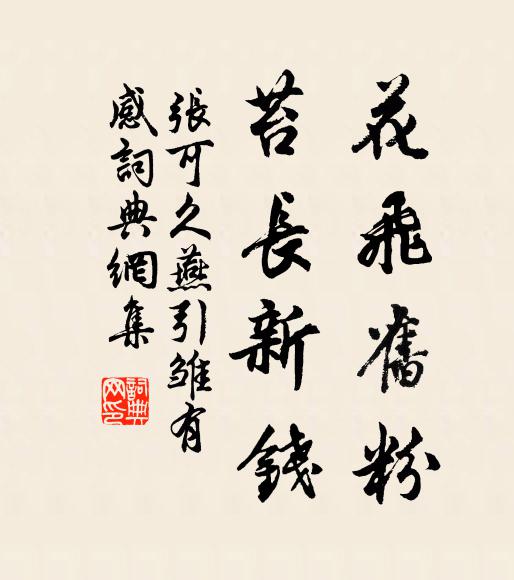 花飛舊粉
苔長新錢
張可久燕引雛有
感詞典網集
詞典網印